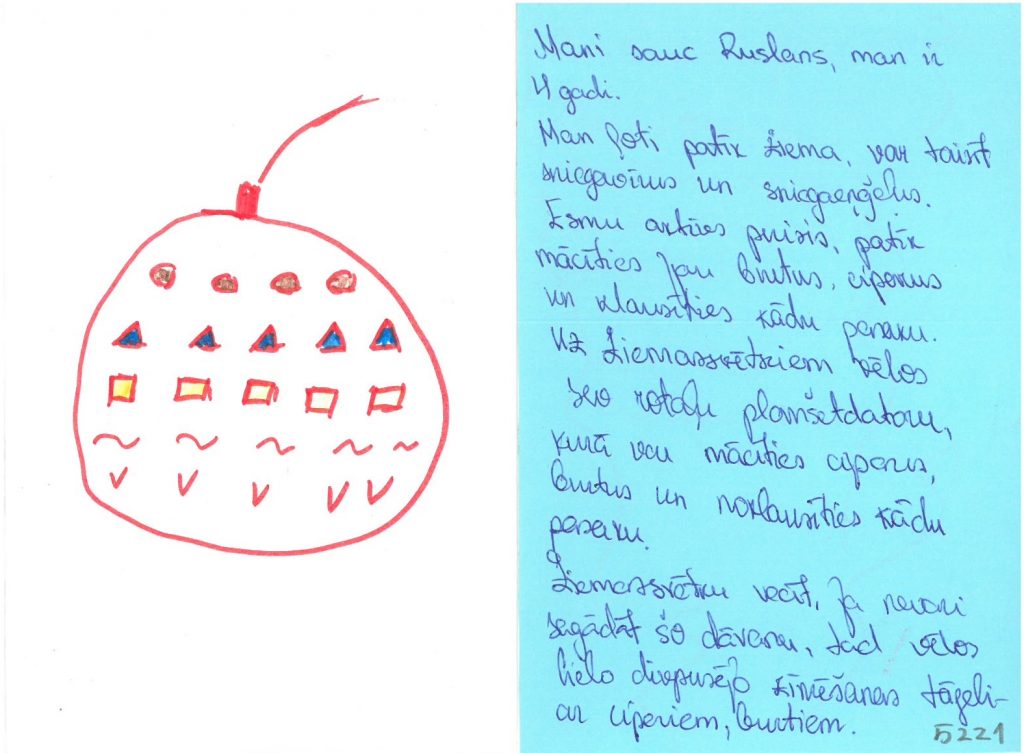 Mani sauc Ruslans, man ir
4 gadi.
Man ļoti patīk ziema, var taisīt
sniegavīrus un sniegaeņģeļus.
Esmu aktīvs puisis, patīk
mācīties jau burtus, ciparus
un klausīties kādu pasaku.
Uz Ziemassvētkiem vēlos
šo rotaļu planšetdatoru,
kurā var mācīties ciparus,
burtus un noklausīties kādu
pasaku.
Ziemassvētku vecīt, ja nevari
sagādāt šo dāvanu, tad vēlos
lielo divpusējo zīmēšanas tāfeli-
ar cipariem, burtiem.
5221